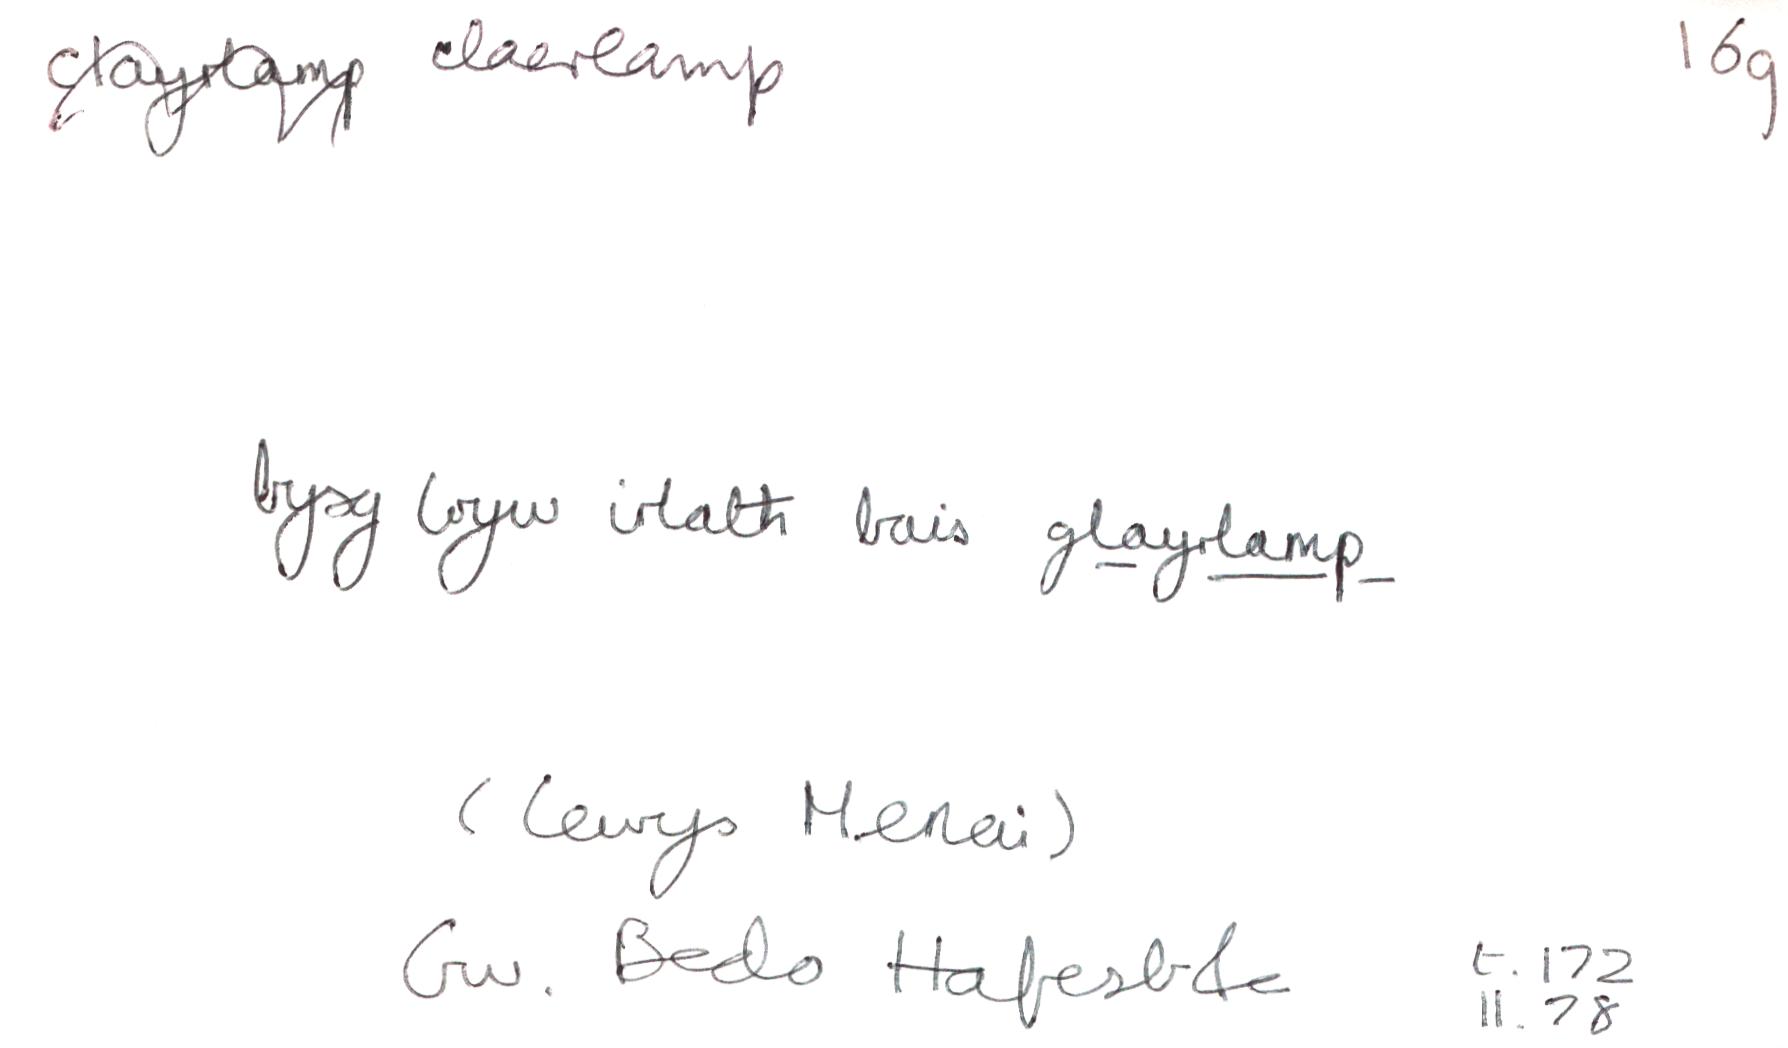 clayrlamp claerlamp 16g
bysg loyw irlath bais glayrlamp
(Lewys Menai)
Gw. Bedo Hafesb &c t. 172
ll. 78